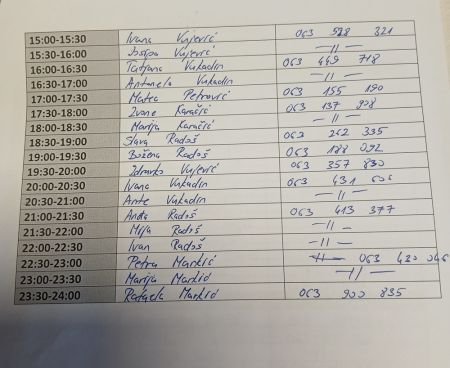 15:00-15:30 Ivana Vujević 063 528 321
15:30-16:00 Josipa Vujević —||—
16:00-16:30 Tatjana Vukadin 063 449 718
16:30-17:00 Antonela Vukadin —||—
17:00-17:30 Matea Petrović 063 155 190
17:30-18:00 Ivone Karačić 063 137 908
18:00-18:30 Marija Karačić —||—
18:30-19:00 Slava Radoš 063 262 335
19:00-19:30 Božena Radoš 063 188 092
19:30-20:00 Zdravko Vujević 063 357 830
20:00-20:30 Ivana Vukadin 063 431
20:30-21:00 Ante Vukadin —||—
21:00-21:30 Anđa Radoš 063 413 377
21:30-22:00 Mija Radoš —||—
22:00-22:30 Ivan Radoš —||—
22:30-23:00 Petra Markić 063 420 046
23:00-23:30 Marija Markić —||—
23:30-24:00 Rafaela Markić 063 900 835